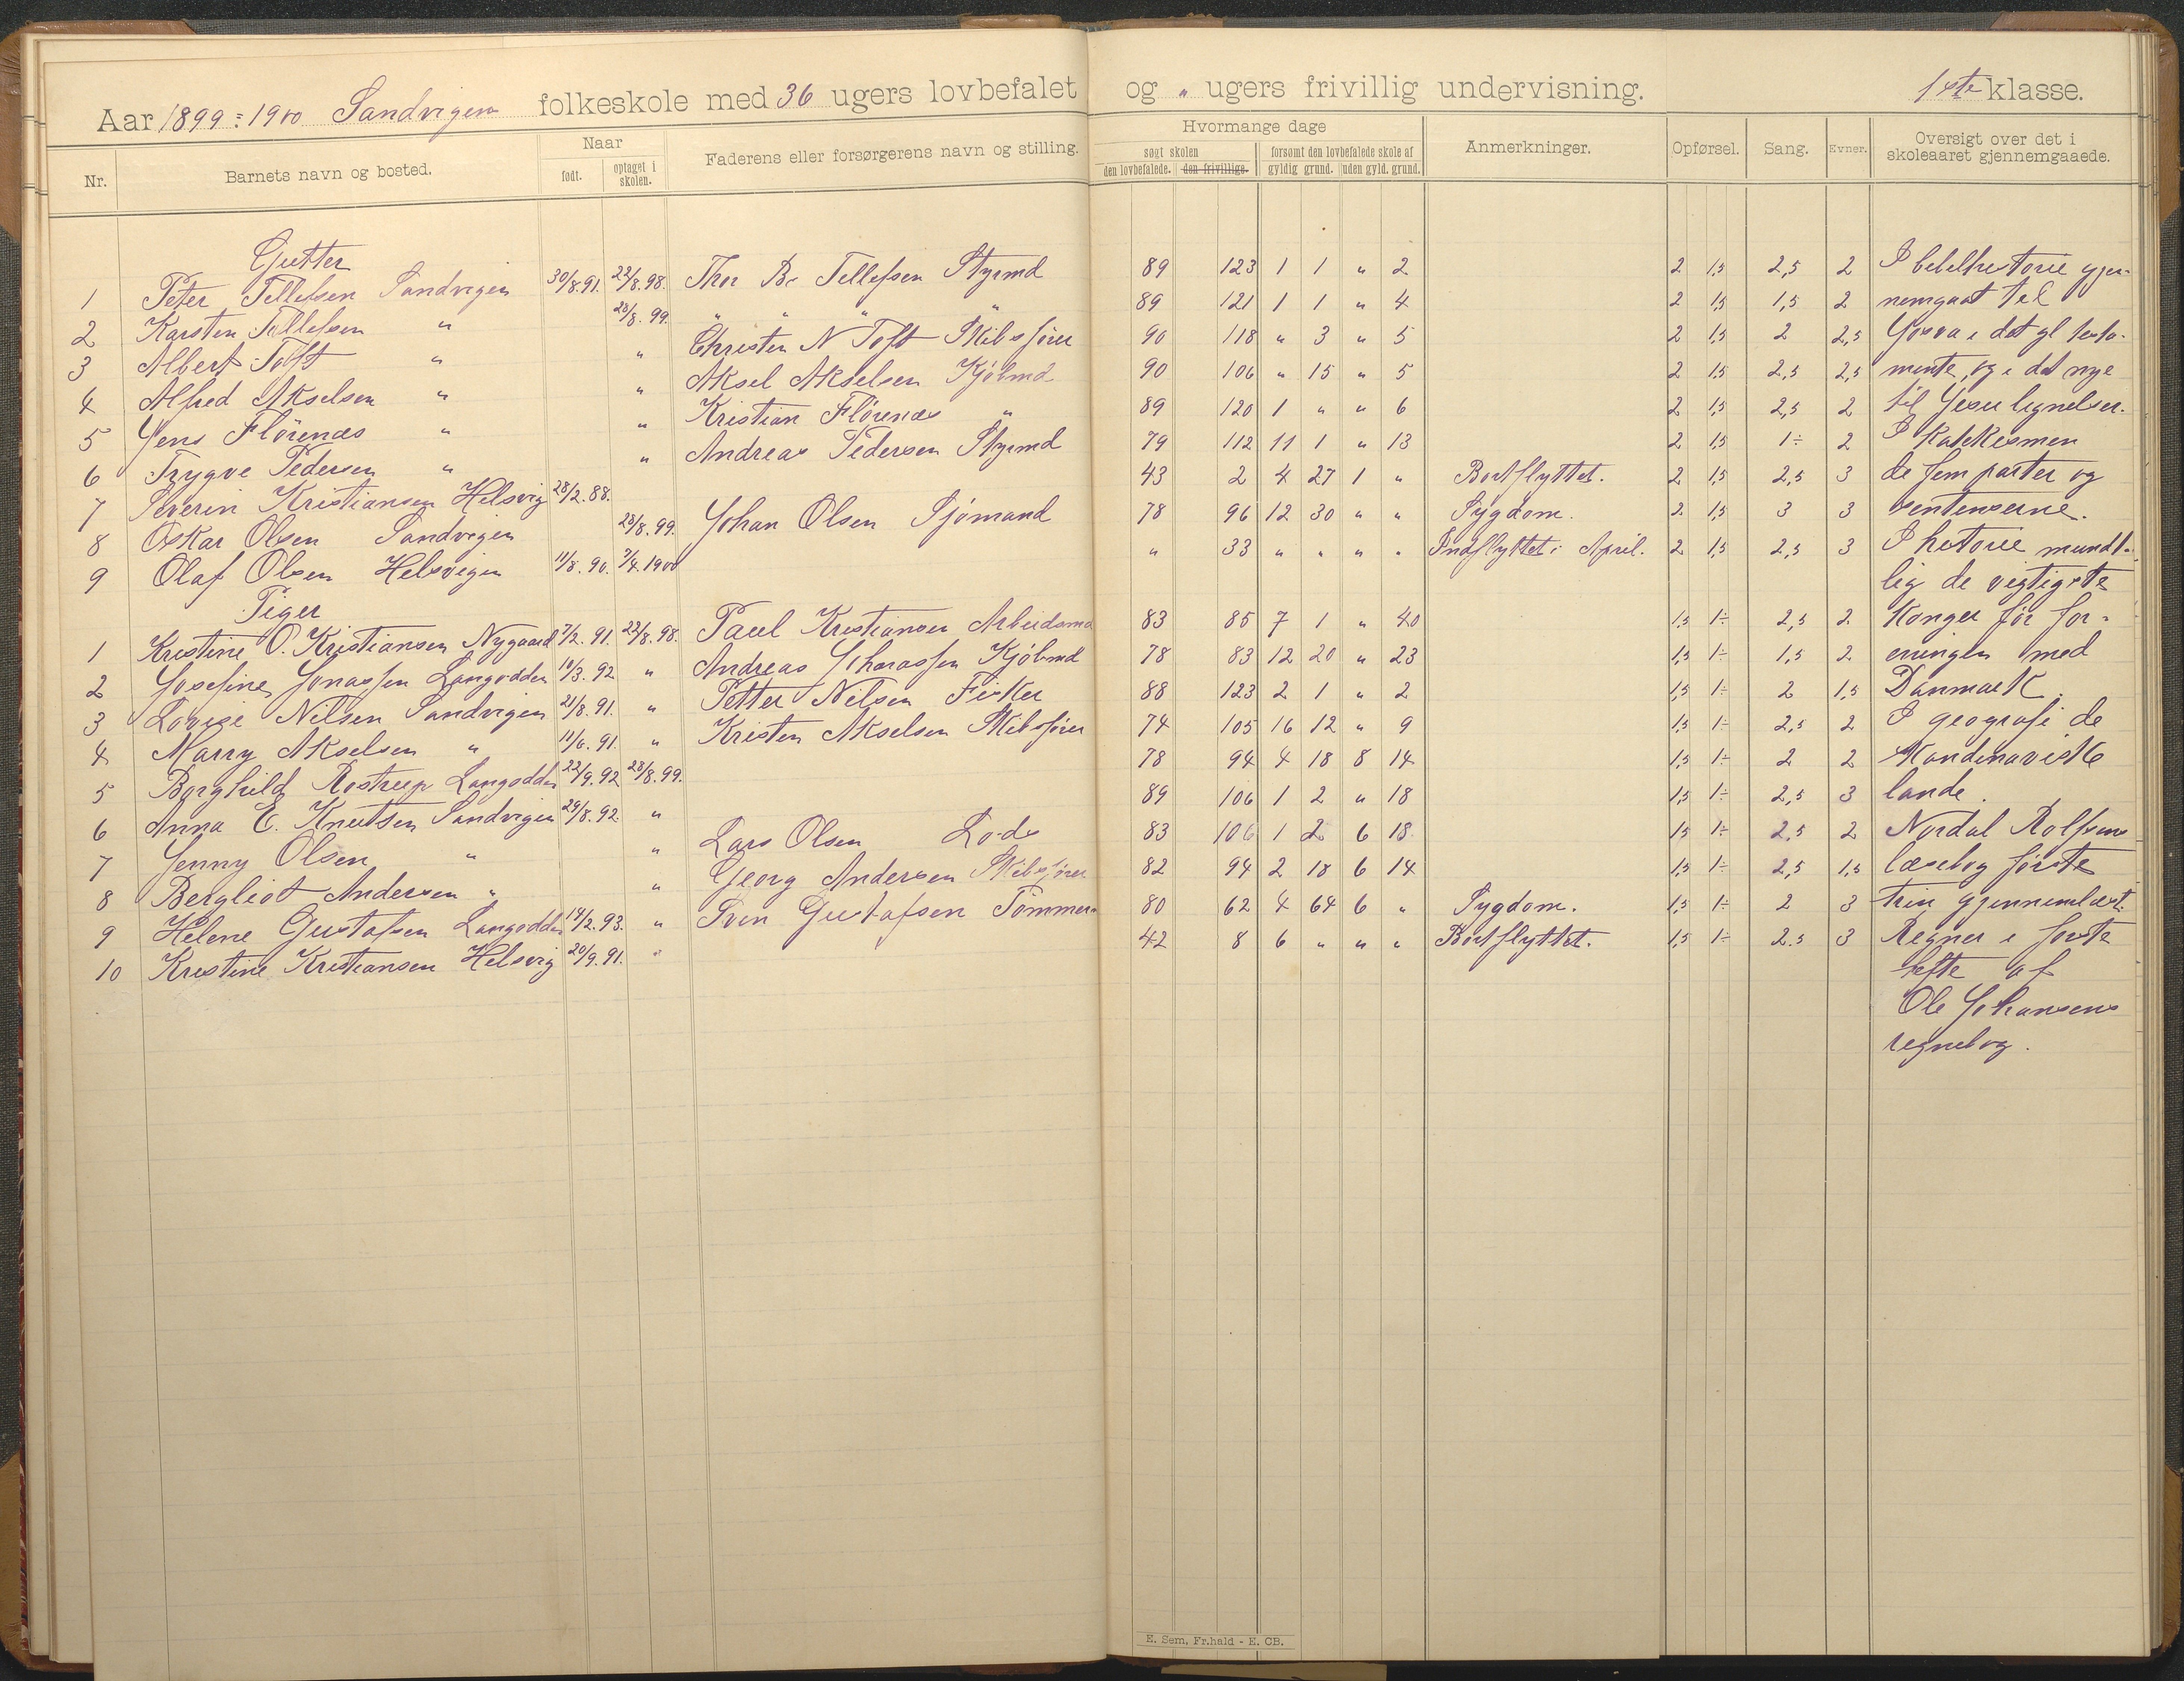 Aar 1899-1900 Sandvigen folkeskole med 36 ugers lovbefalet og " ugers frivillig undervisning. 1ste klasse.
Nr. Barnets navn og bosted. Naar født. optaget i skolen. Faderens eller forsørgerens navn og stilling. Hvormange dage søgt skolen den lovbefalede. den frivillige. forsømt den lovbefalede skole af gyldig grund. uden gyld. grund. Anmerkninger. Opførsel. Sang. Evner. Oversigt over det i skoleaaret gjennemgaaede.
Gutter
1 Peter Tellefsen Sandvigen 30/8.91. 22/8.98. Thor B. Tellefsen Styrmd 89 123 1 1 " 2 2 1,5 2,5 2 I bibelhistorie gjen-
2 Karsten Tellefsen " 28/8.99. " " " " 89 121 1 1 " 4 2 1,5 1,5 2 nemgaat til
3 Albert Toft " " Christen N Toft Skibsfører 90 118 " 3 " 5 2 1,5 2 2,5 Josva i det gl testa-
4 Alfred Akselsen " " Aksel Akselsen Kjøbmd 90 106 " 15 " 5 2 1,5 2,5 2,5 mente, og i det nye
5 Jens Flörenæs " " Kristian Flörenæs " 89 120 1 " " 6 2 1,5 2,5 2 til Jesu lignelser.
6 Trygve Pedersen " " Andreas Pedersen Styrmd 79 112 11 1 " 13 2 1,5 1÷ 2 I Katekismen
7 Severin Kristiansen Helsvig 28/2.88. 43 2 4 27 1 " Bortflyttet. 2 1,5 2,5 3 de fem parter og
8 Oskar Olsen Sandvigen 28/8.99. Johan Olsen Sjömand 78 96 12 30 " " Sygdom. 2 1,5 3 3 sentenserne.
9 Olaf Olsen Helsvigen 11/8.90. 7/4.1900 " 33 " " " " Indflyttet i April. 2 1,5 2,5 3 I hitorie mundt-
Piger lig de vigtigste
1 Kristine O. Kristiansen Nygaard 7/2.91. 22/8.98. Paul Kristiansen Arbeidsmd 83 85 7 1 " 40 1,5 1÷ 2,5 2 Konger för for-
2 Josefine Jonassen Langodden 10/3.92 " Andreas Johnassen Kjöbmd 78 83 12 20 " 23 1,5 1÷ 1,5 2 eningen med
3 Lovise Nilsen Sandvigen 21/8.91. " Petter Nilsen Fisker 88 123 2 1 " 2 1,5 1÷ 2 1,5 Danmark.
4 Marry Akselsen " 11/6.91. " Kristen Akselsen Skibsfører 74 105 16 12 " 9 1,5 1÷ 2,5 2 I geografi de
5 Borghild Rostrup Langodden 22/9.92 28/8.99. 78 94 4 18 8 14 1,5 1÷ 2 2 Skandinaviske
6 Anna E. Knutsen Sandvigen 29/8.92 " 89 106 1 2 " 18 1,5 1÷ 2,5 3 lande.
7 Jenny Olsen " " Lars Olsen Lods 83 106 1 2 6 18 1,5 1÷ 2,5 2 Nordal Rolfsens
8 Bergliot Andersen " " Georg Andersen Skibsfører 82 94 2 18 6 14 1,5 1÷ 2,5 1,5 læsebog første
9 Helene Gustafsen Langodden 14/2.93. " Sven Gustafsen Tömmerm 80 62 4 64 6 " Sygdom. 1,5 1÷ 2 3 trin gjennemlæst.
10 Kristine Kristiansen Helsvig 20/9.91. " 42 8 6 " " " Bortflyttet. 1,5 1÷ 2.5 3 Regner i første
hefte af
Ole Johansens
regnebog.
E. Sem, Fr.hald - E. CB.